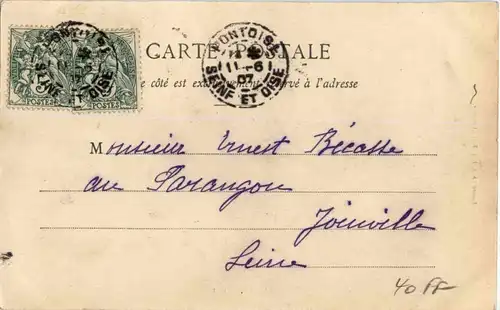 CARTE POSTALE
PONTOISE
11-6
07
SEINE ET OISE
Ce côté est exclusivement réservé à l'adresse
POSTES POSTES
Monsieur Ernest Bécasse
au Parangon
Joinville
Seine
40 FF